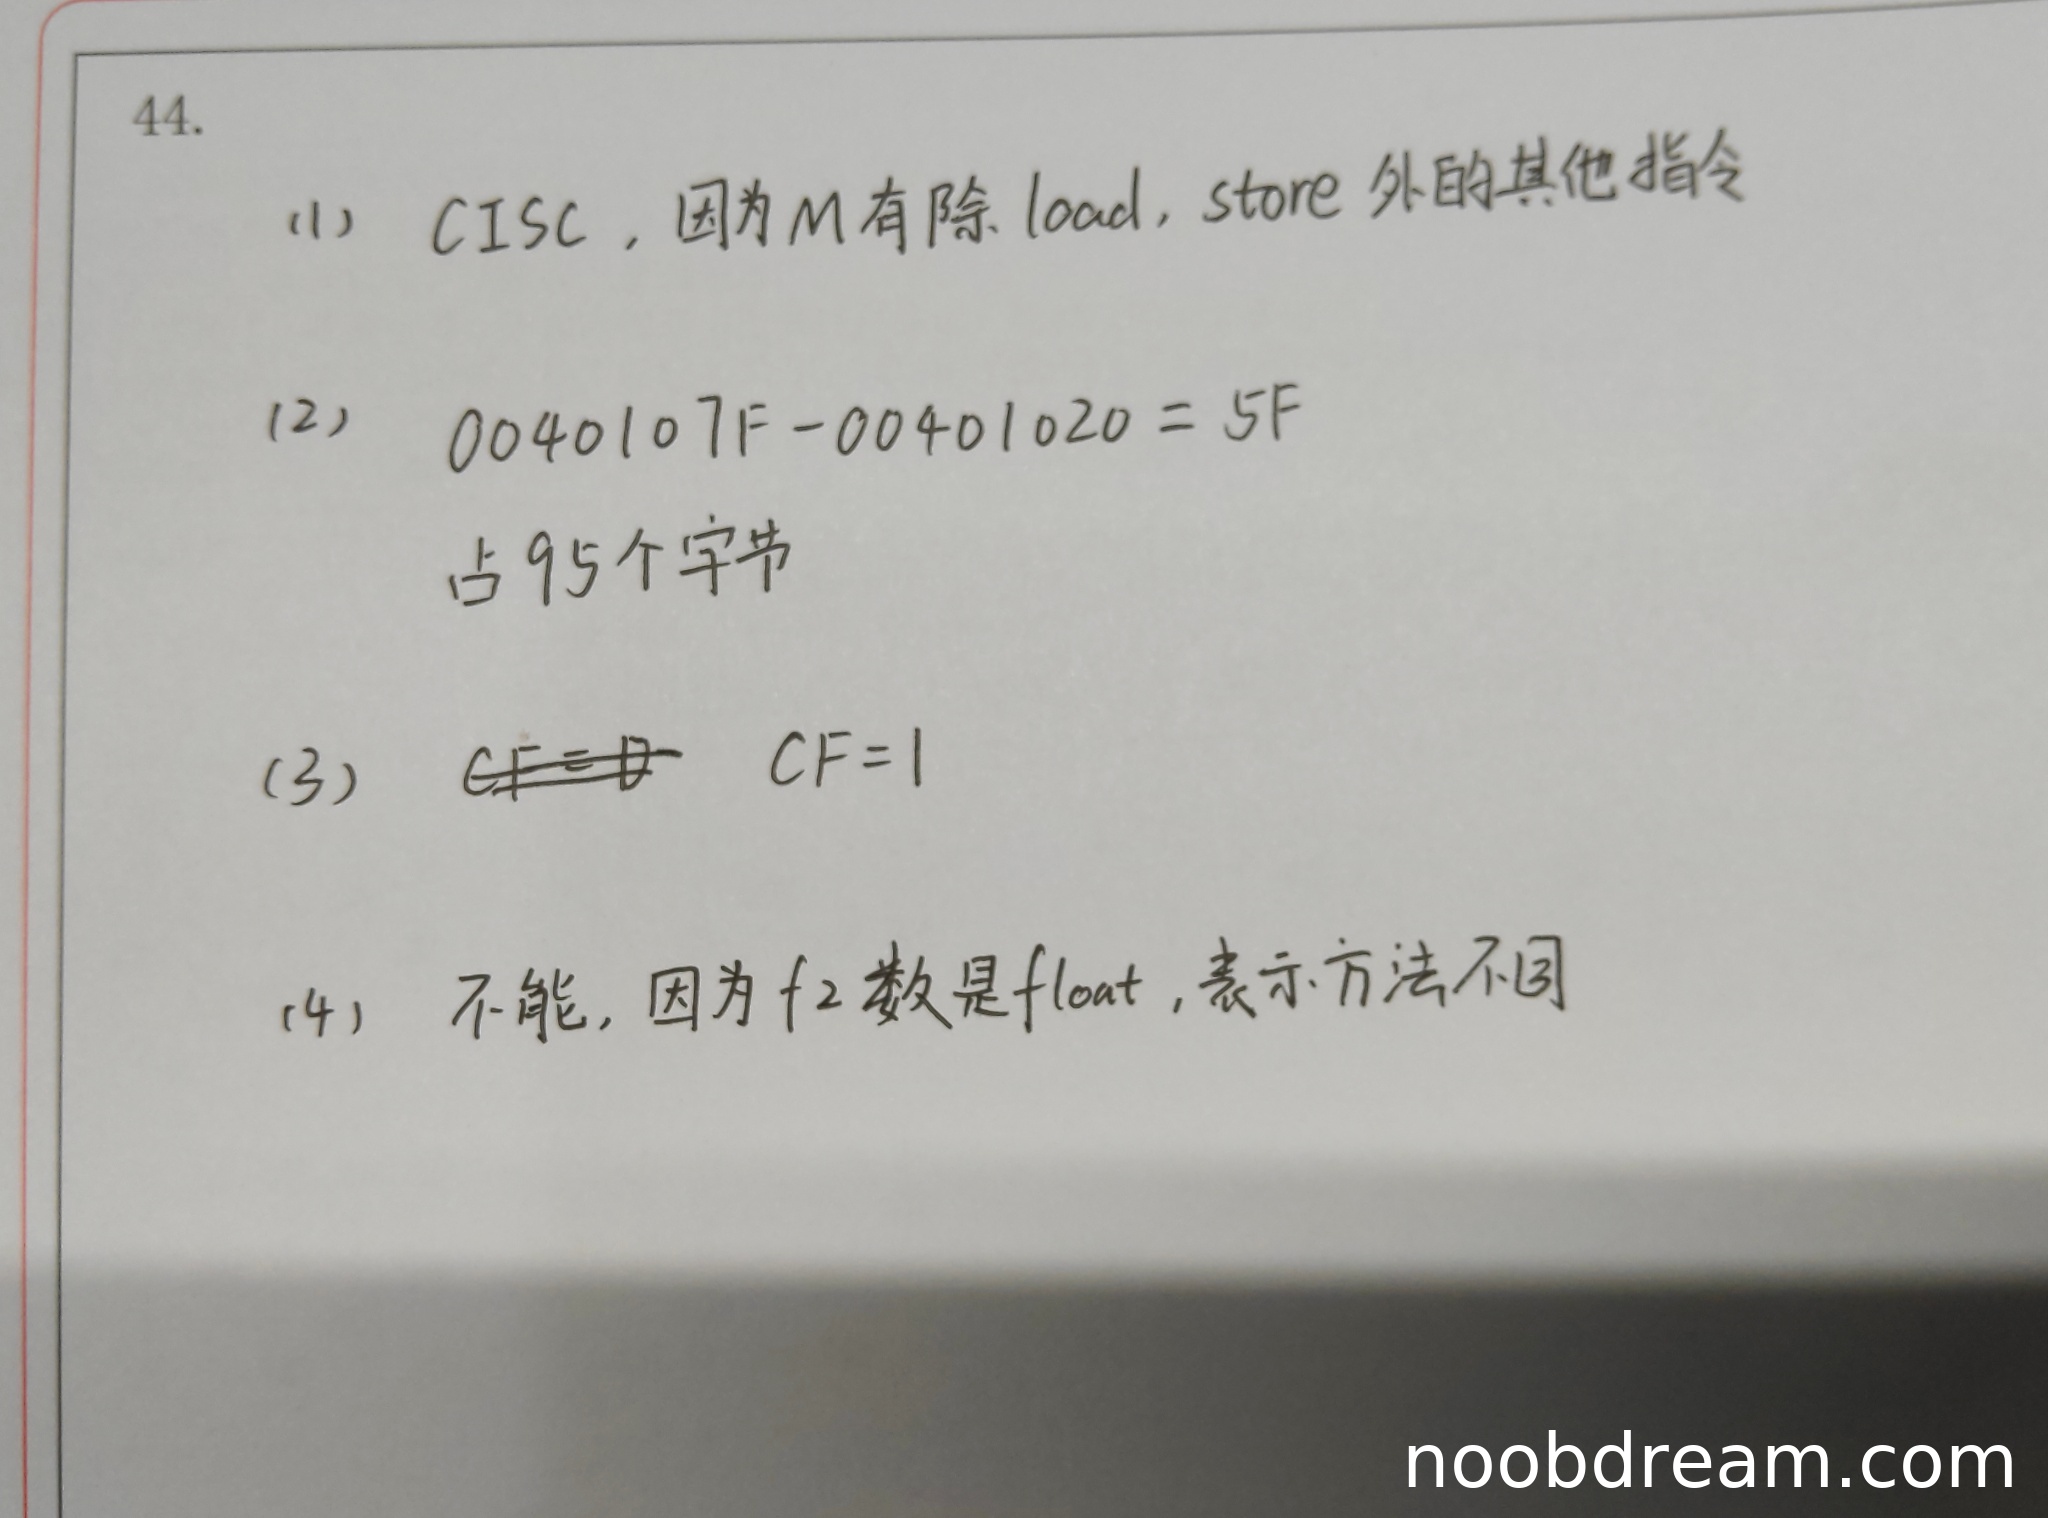 44.
(1) CISC，因为M有除load，store外的其他指令
(2) 0040107F-00401020=5F
占95个字节
(3) CF=0 CF=1
(4) 不能，因为f2数是float，表示方法不同
noobdream.com